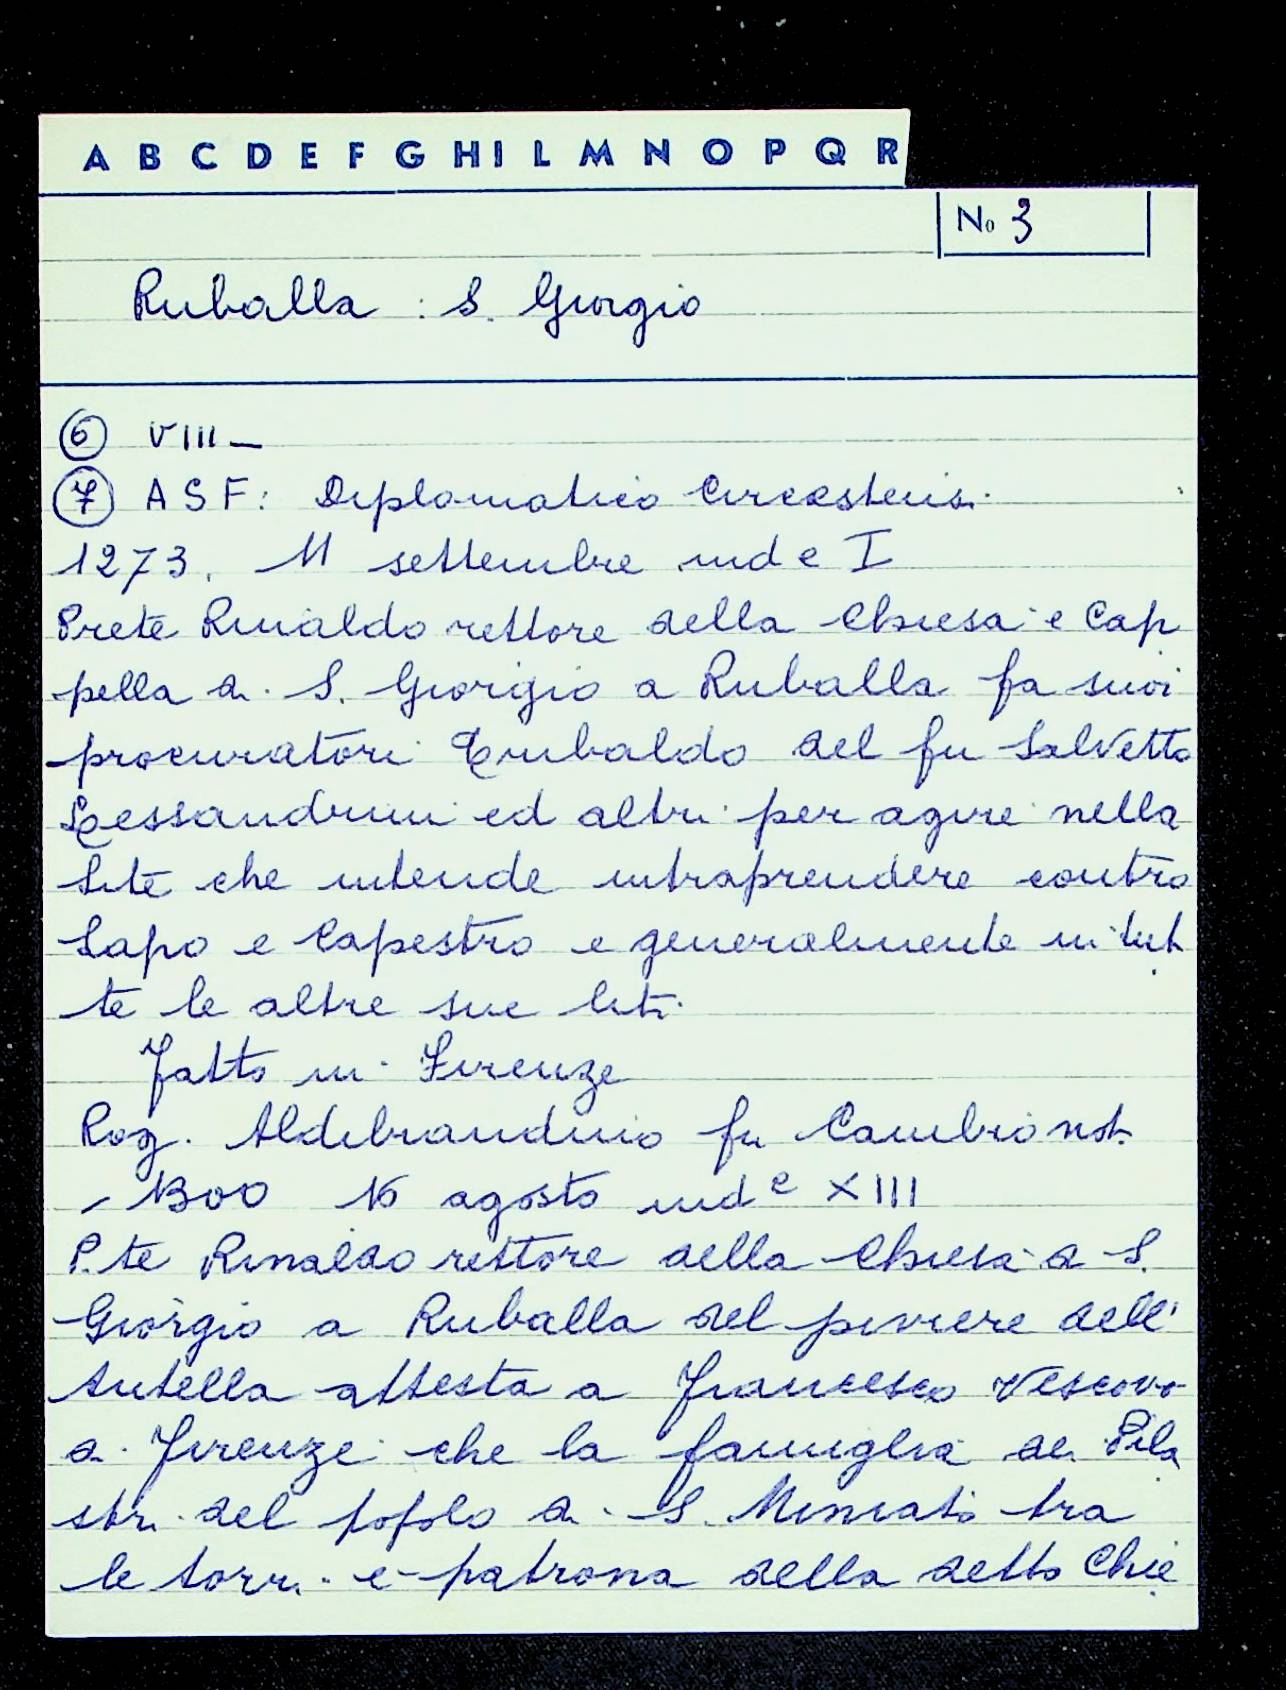 A B C D E F G H I L M N O P Q R
No 3
Ruballa : S. Giorgio
6 VIII -
7 ASF: Diplomatico Cirestensi.
1273, 11 settembre ind e I
Prete Rinaldo rettore della Chiesa e Cap
pella di S. Giorgio a Ruballa fa suoi
procuratori del fu Salvetto
ed altri per agire nella
lite che intende intraprendere contro
Lapo e Capestro e generalmente in tut
te le altre sue liti.
Fatto in Firenze
Rog. Aldibrandino fu Cambio not.
- 1300 16 agosto ind e XIII
P.te Rinaldo rettore della Chiesa di S.
Giorgio a Ruballa del piviere dell'
Antella attesta a Francesco Vescovo
di Firenze che la famiglia dei Pila
stri del popolo di S. Miniato tra
le torri e patrona della detta Chie